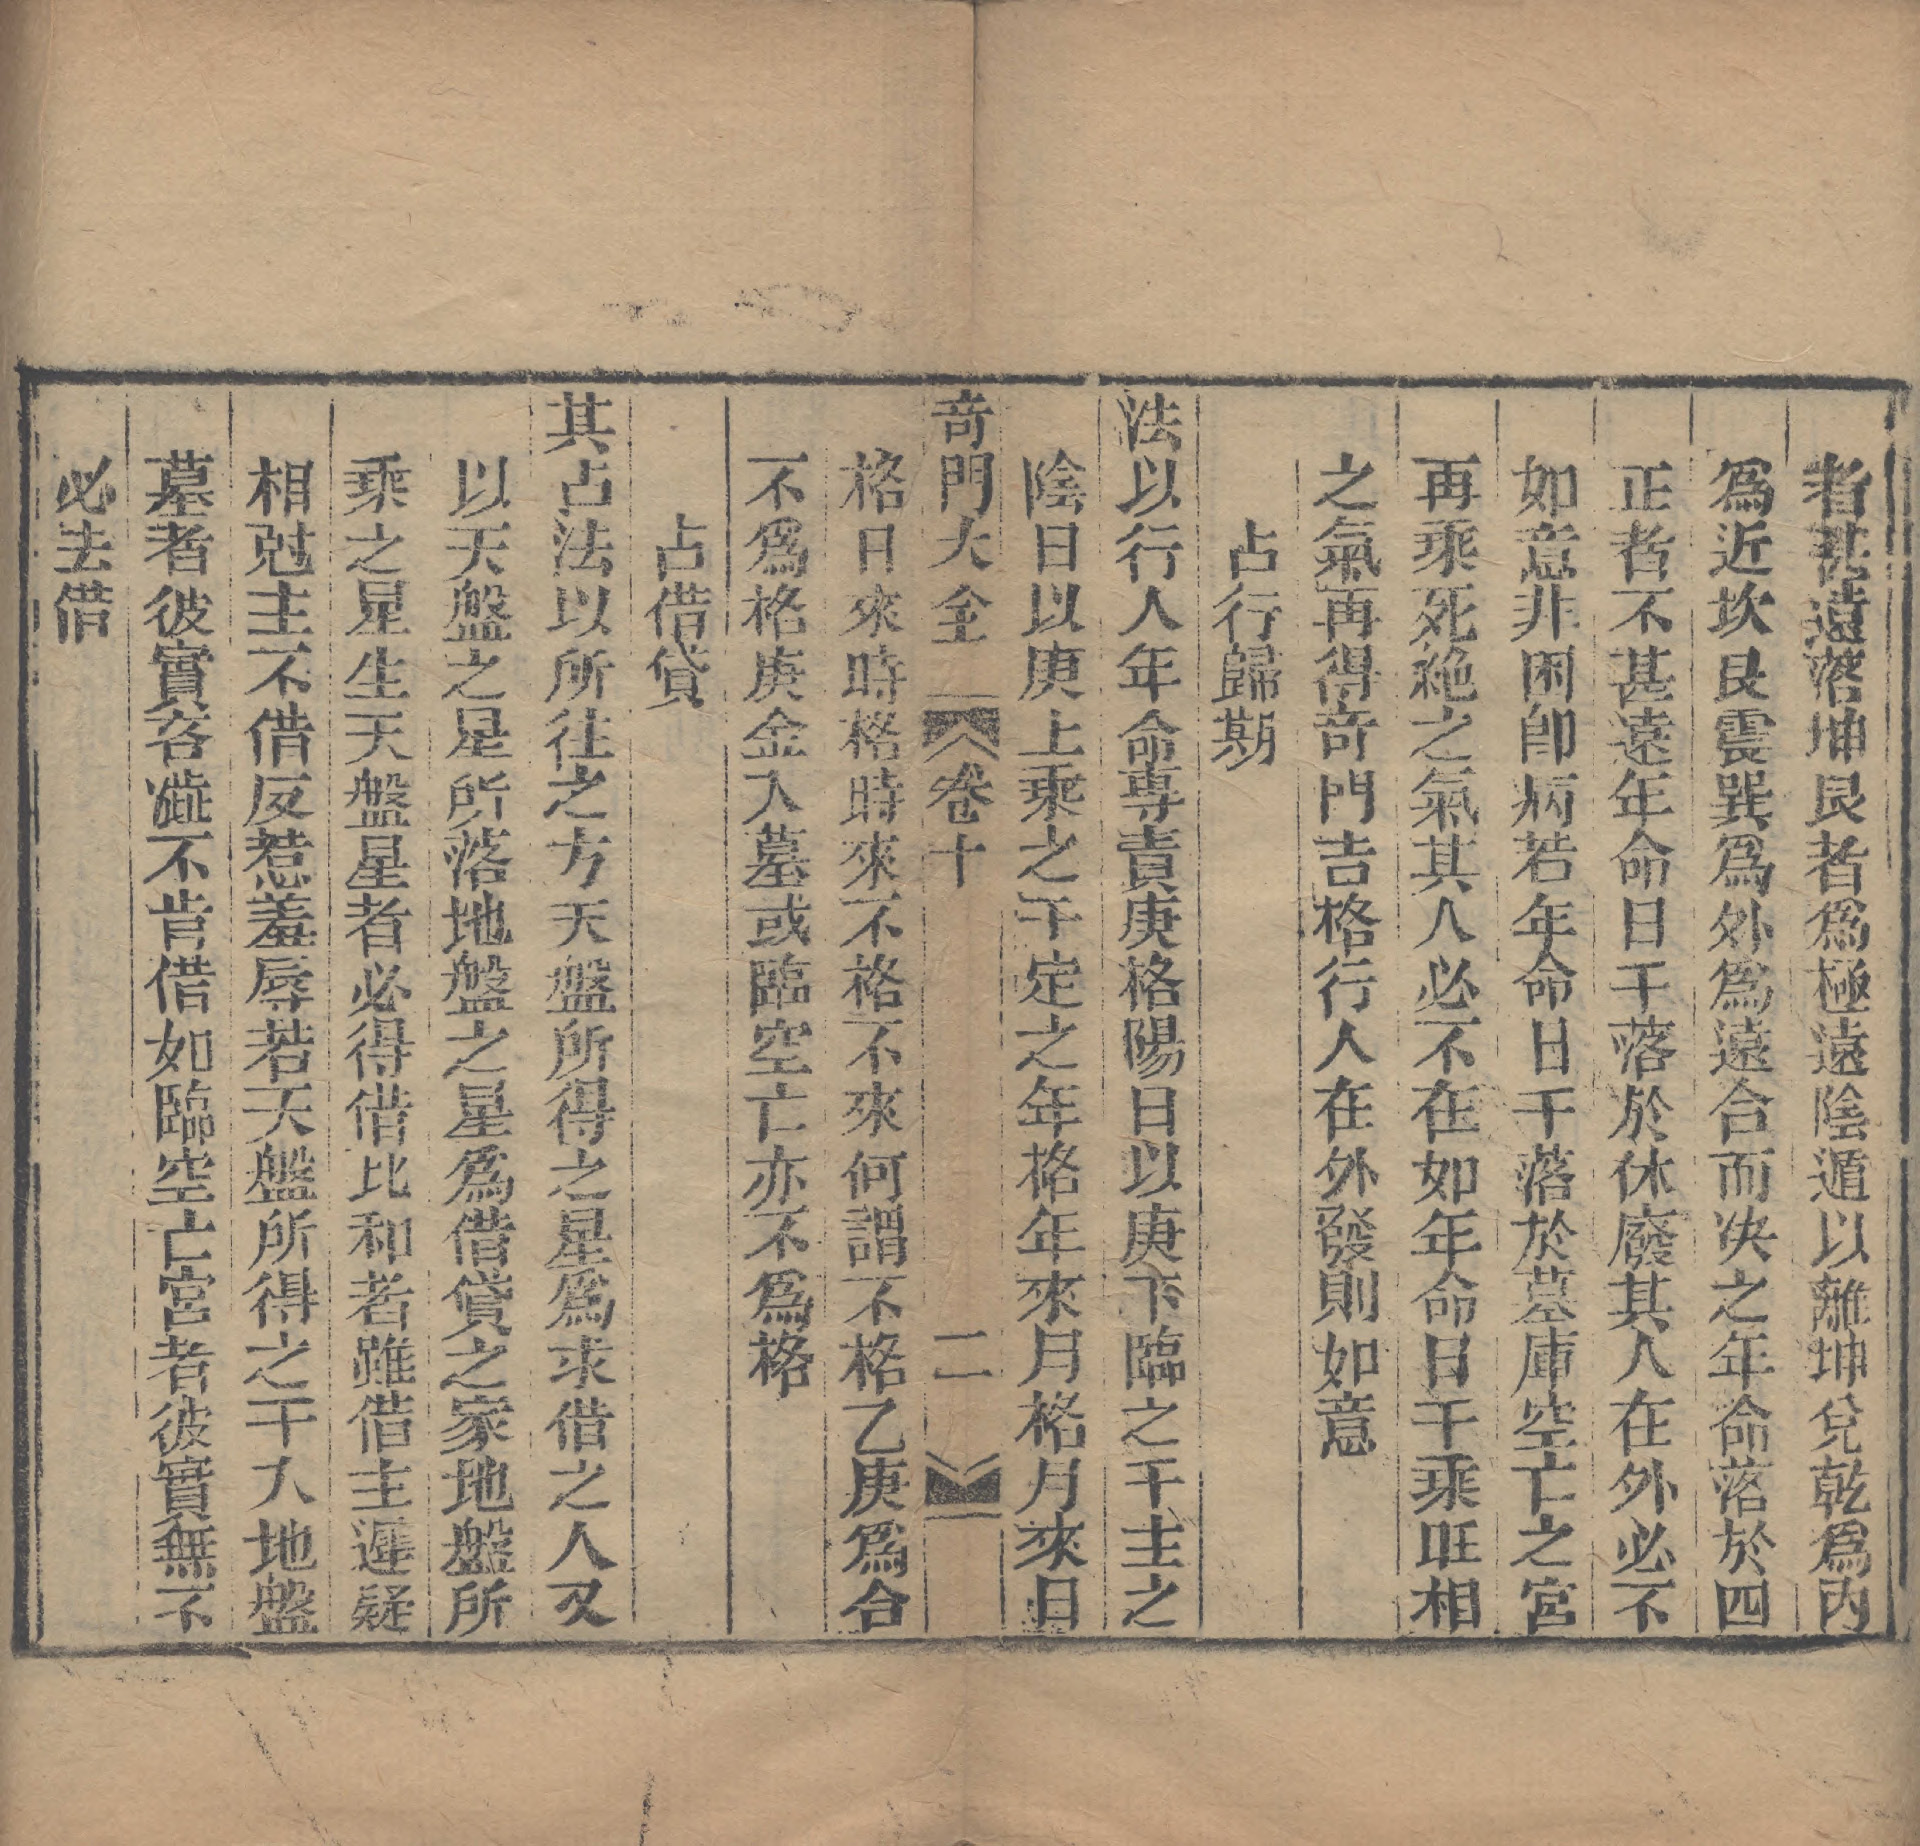 者甚遠落坤艮者爲極遠陰遁以離坤兌乾爲內
爲近坎艮震巽爲外爲遠合而决之年命落於四
正者不甚遠年命日干落於休廢其人在外必不
如意非困卽病若年命日干落於墓庫空亡之宮
再乘死絶之氣其人必不在如年命日干乘旺相
之氣再得奇門吉格行人在外發則如意
占行歸期
法以行人年命專責庚格陽日以庚下臨之干主之
陰日以庚上乘之干定之年格年來月格月來日
奇門大全 卷十 二
格日來時格時來不格不來何謂不格乙庚爲合
不爲格庚金入墓或臨空亡亦不爲格
占借貸
其占法以所往之方天盤所得之星爲求借之人又
以天盤之星所落地盤之星爲借貸之家地盤所
乘之星生天盤星者必得借比和者雖借主遲疑
相尅主不借反惹羞辱若天盤所得之干入地盤
墓者彼實吝澁不肯借如臨空亡宮者彼實無不
必去借